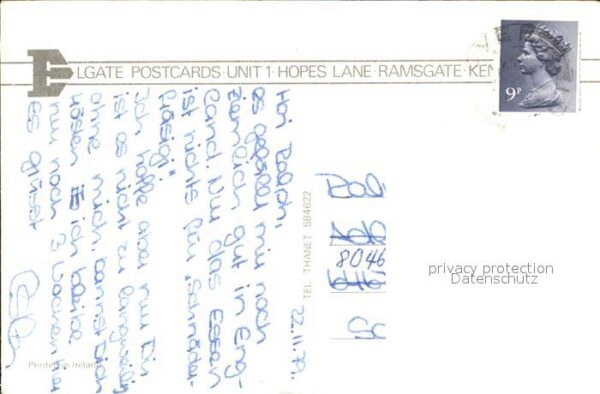 ELGATE POSTCARDS · UNIT 1 · HOPES LANE · RAMSGATE · KEN
9P
22.11.79.
Hoi Ralph,
es gefällt mir noch
ziemlich gut in Eng-
land. Nur das Essen
ist nichts für "Schnäder-
frässigi"
Ich hoffe aber nur Dir
ist es nicht zu langweilig
ohne mich, kannst Dich
trösten ich bleibe
nur noch 3 Wochen hier
Es grüsst
TEL. THANET 584622
8046
privacy protection
Datenschutz
Printed in Ireland